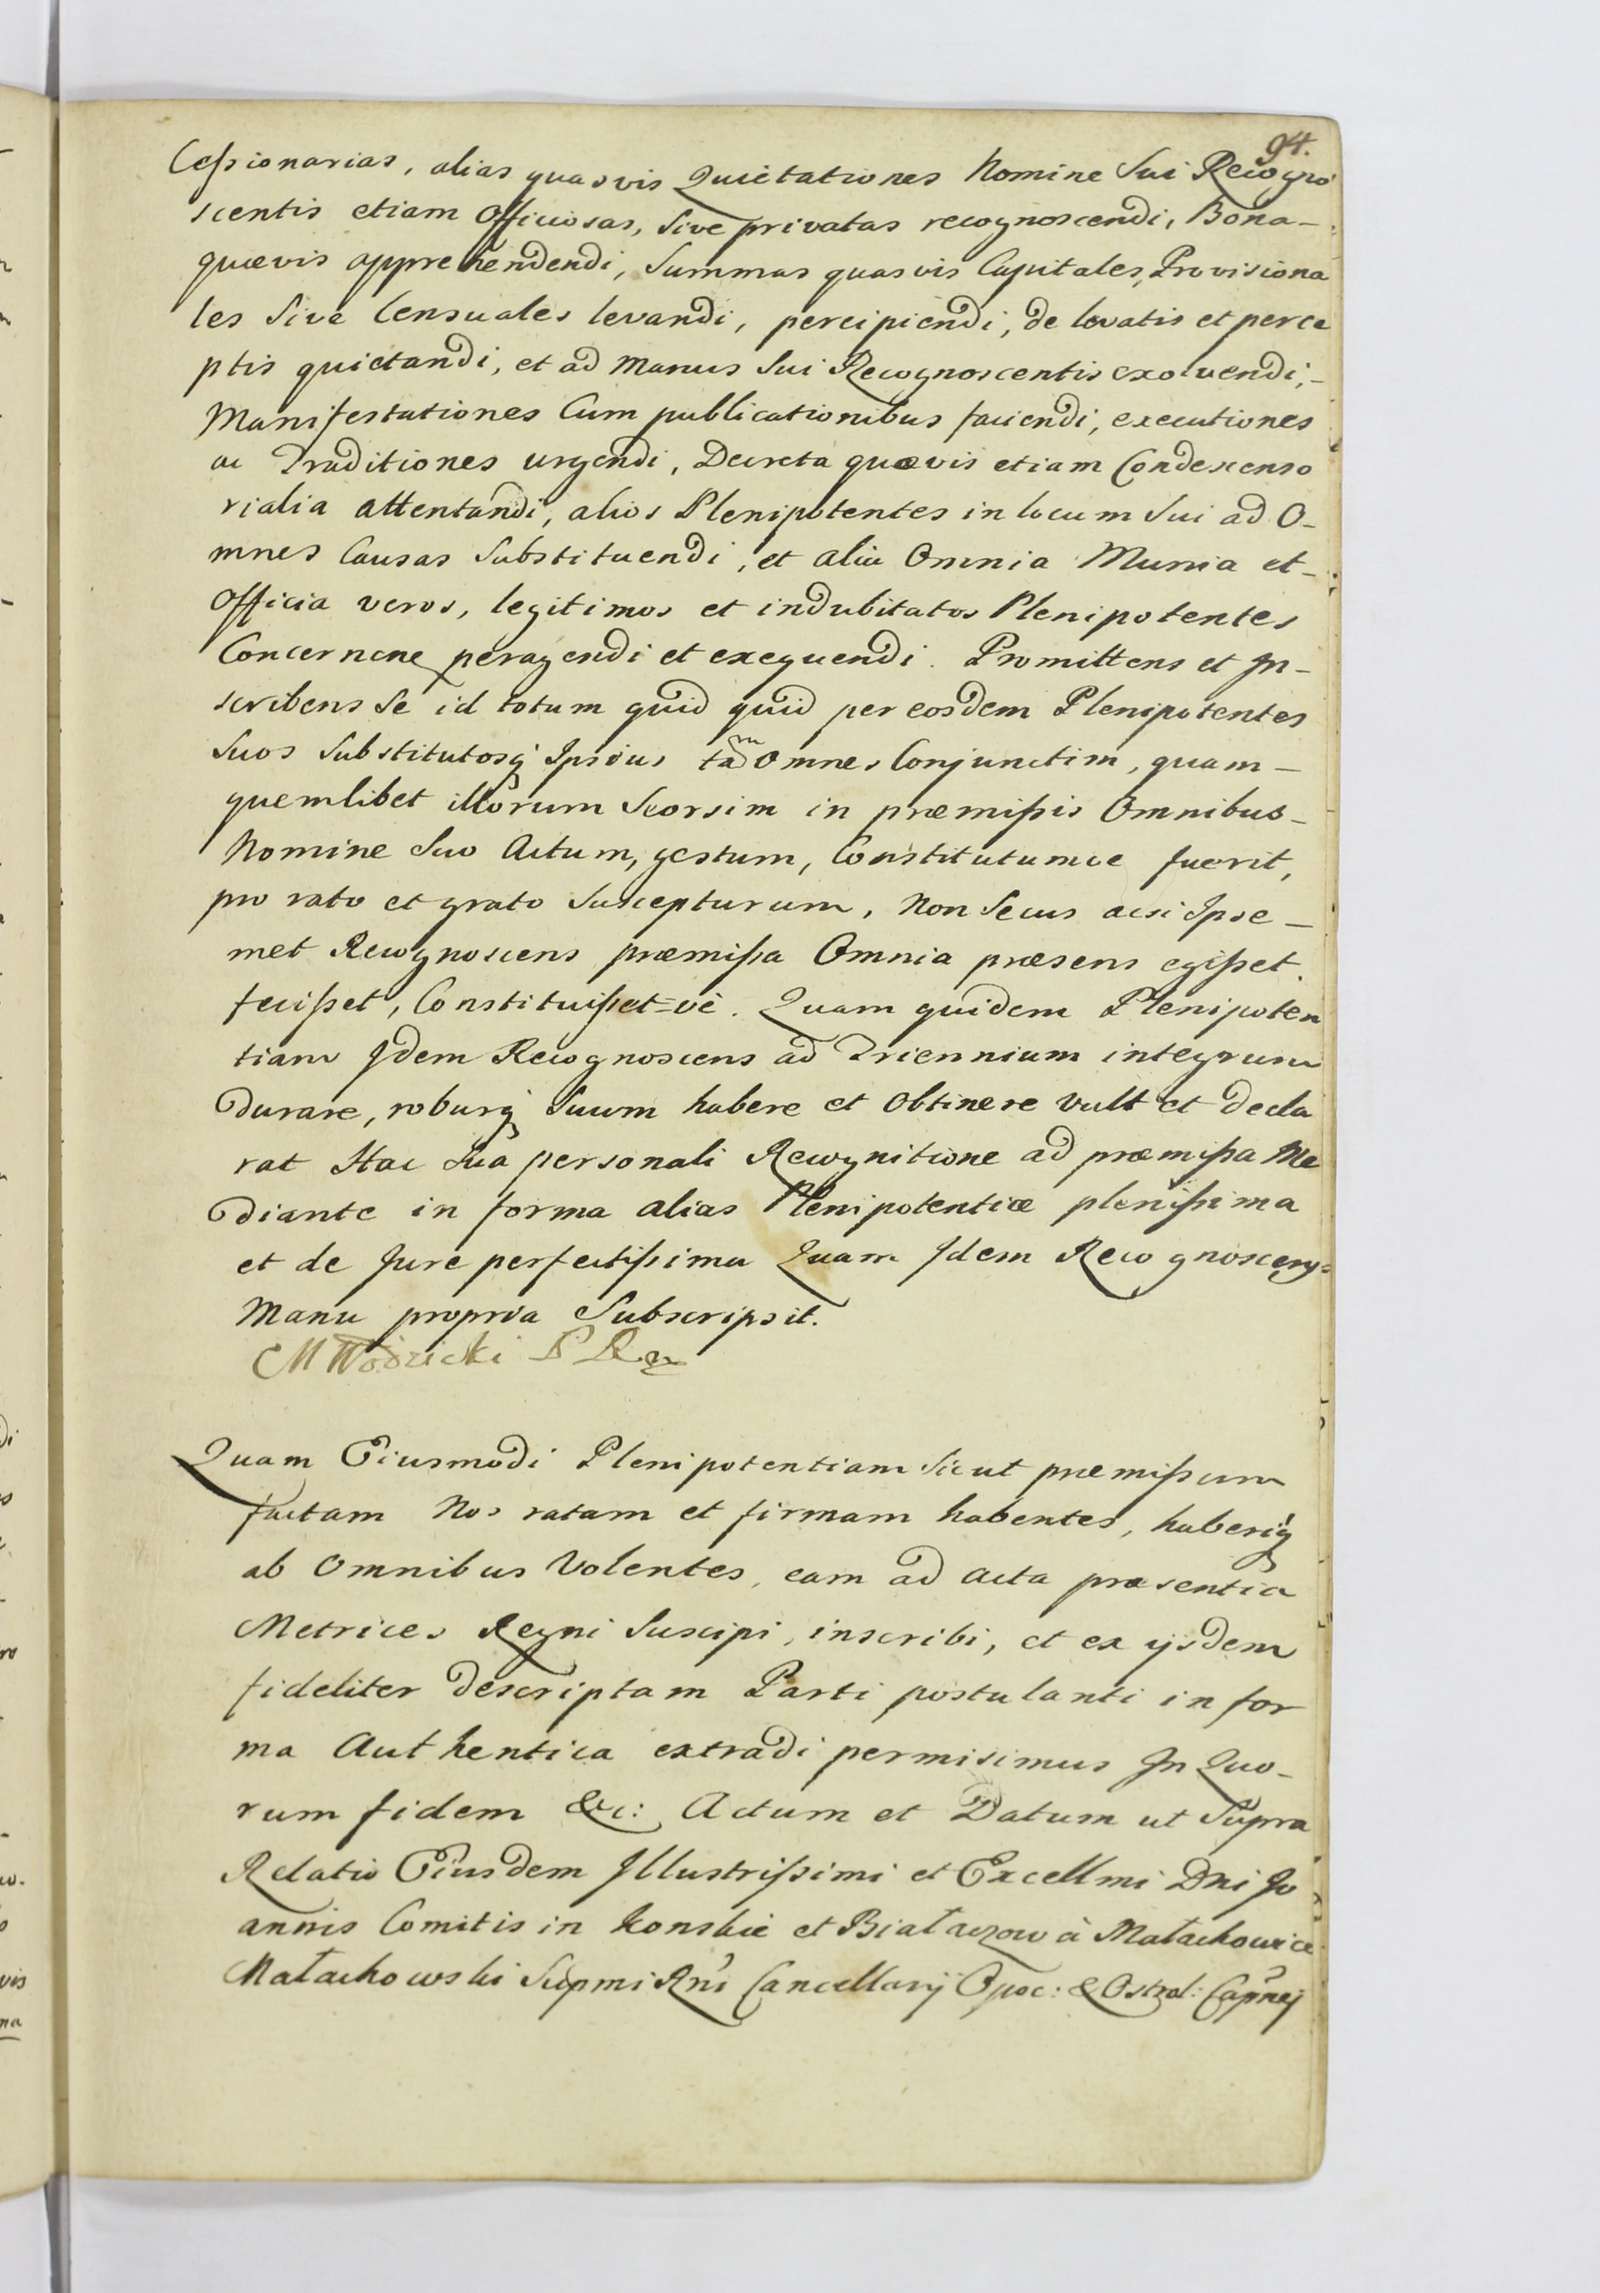 94.
Cessionarias, alias quasvis Quietationes Nomine Sui Recogno
scentis etiam Officiosas, sive privatas recognoscendi, Bona-
quævis apprehendendi, Summas quasvis Capitales, Provisiona
les Sive Censuales levandi, percipiendi, de levatis et perce
ptis quietandi, et ad Manus Sui Recognoscentis exolvendi,-
Manifestationes Cum publicationibus faciendi, executiones
ac Traditiones urgendi, Decreta quævis etiam Condescenso
rialia attentandi, alios Plenipotentes in locum Sui ad O-
mnes Causas Substituendi, et alia Omnia Munia et-
Officia veros, legitimos et indubitatos Plenipotentes
Concernene peragendi et exequendi. Promittens et In-
scribens Se id totum quid quid per eosdem Plenipotentes
Suos Substitutosq Ipsius tam Omnes Conjunctim, quam-
quemlibet illorum Seorsim in præmissis Omnibus-
Nomine Suo Actum, gestum, Constitutumve fuerit,
pro rato et grato Suscepturum, Non Secus acsi Ipse-
met Recognoscens præmissa Omnia præsens egisset.
fecisset, Constituisset=vè. Quam quidem Plenipoten
tiam Idem Recognoscens ad Triennium integrum
Durare, roburq Suum habere et Obtinere Vult et decla
rat Hac Suâ personali Recognitione ad præmissa Me
diante in forma alias Plenipotentiæ plenissima
et de Jure perfectissima Quam Idem Recognoscens=
Manu propria Subscripsit.
MWodzicki
Quam Eiusmodi Plenipotentiam Sicut præmissum
factam Nos ratam et firmam habentes, haberiq
ab Omnibus Volentes, eam ad Acta præsentia
Metrices Regni Suscipi, inscribi, et ex ijsdem
fideliter descriptam Parti postulanti in for
ma Authentica extradi permisimus In Quo-
rum fidem &c: Actum et Datum ut Supra
Relatio Eiusdem Illustrissimi et Excellmi Dni Jo
annis Comitis in Konskie et Białaczow à Małachowice
Małachowski Supmi Rni Cancellarij Opoc: & Ostrol: Capnei